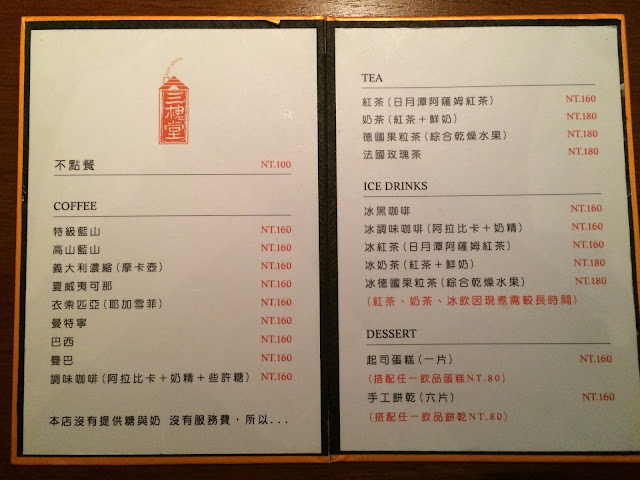 三槐堂
不點餐 NT.100
COFFEE
特級藍山 NT.160
高山藍山 NT.160
義大利濃縮(摩卡壺) NT.160
夏威夷可那 NT.160
衣索匹亞(耶加雪菲) NT.160
曼特寧 NT.160
巴西 NT.160
曼巴 NT.160
調味咖啡(阿拉比卡+奶精+些許糖) NT.160
本店沒有提供糖與奶 沒有服務費,所以...
TEA
紅茶(日月潭阿薩姆紅茶) NT.160
奶茶(紅茶+鮮奶) NT.180
德國果粒茶(綜合乾燥水果) NT.180
法國玫瑰茶 NT.180
ICE DRINKS
冰黑咖啡 NT.160
冰調味咖啡(阿拉比卡+奶精) NT.160
冰紅茶(日月潭阿薩姆紅茶) NT.160
冰奶茶(紅茶+鮮奶) NT.180
冰德國果粒茶(綜合乾燥水果) NT.180
(紅茶、奶茶、冰飲因現煮需較長時間)
DESSERT
起司蛋糕(一片) NT.160
(搭配任一飲品蛋糕NT.80)
手工餅乾(六片) NT.160
(搭配任一飲品餅乾NT.80)